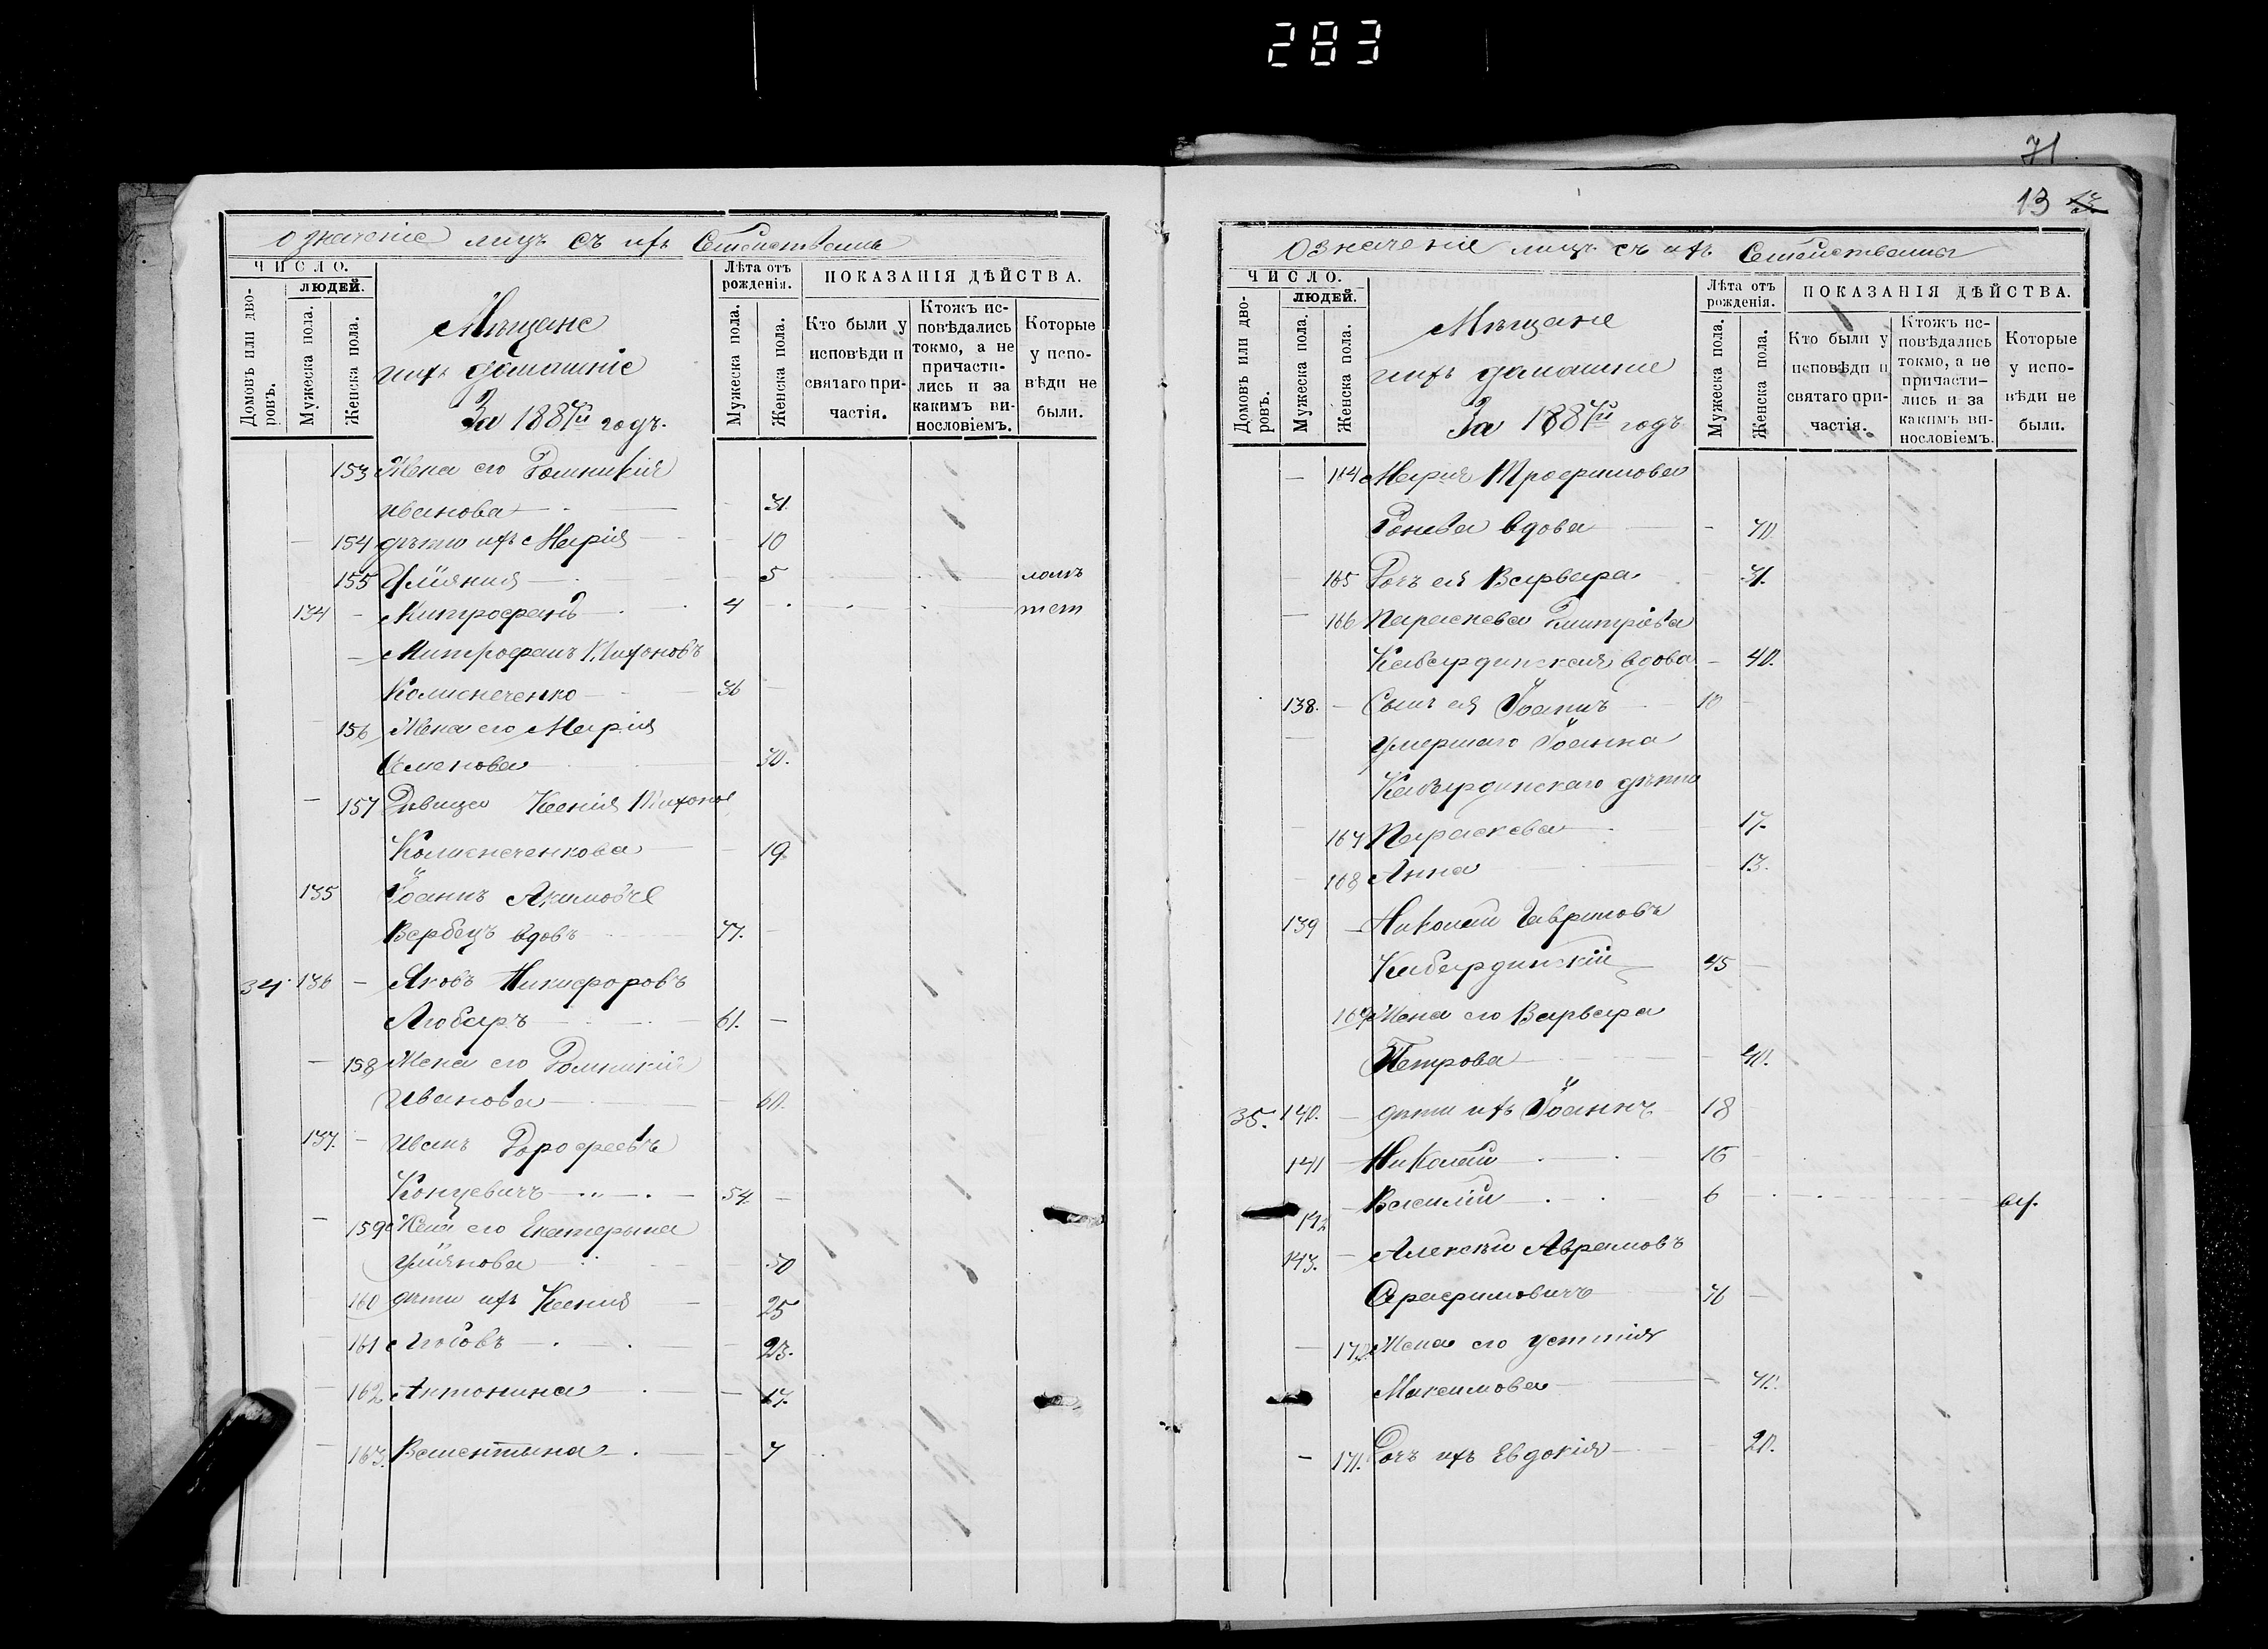 283
71
означеніе лицъ съ ихъ Семействами
ЧИСЛО.
ЛЮДЕЙ.
Домовъ или дворовъ.
Мужеска пола.
Женска пола.
Мѣщане
ихъ домашніе
За 1887й годъ.
Лѣта отъ рожденія.
Мужеска пола.
Женска пола.
ПОКАЗАНІЯ ДѢЙСТВА.
Кто были у исповѣди и святаго причастія.
Ктожъ исповѣдались токмо, а не причастились и за какимъ винословіемъ.
Которые у исповѣди не были.
153 Жена его Домникія
иванова 31.
154 дѣти ихъ Марія 10
155 Уліянія 5
134 Митрофанъ 4
Митрофанъ Тихоновъ
36
156 Жена его Марія
Семенова 30.
157 Дѣвица Ксенія Тихонов
19.
135 Іоаннъ Акимовъ
Вербецъ вдовъ 77.
34 136 Яковъ Никифоровъ
Любарь 61.
158 Жена его Домникія
Иванова 60.
137. Иванъ Дорофеевъ
Концевичъ 54.
159 Жена его Екатерина
Уліянова 50
160 дѣти ихъ Ксенія 25
161 Любовь 23.
162 Антонина 17.
163. Валентина 7
13
Означеніе лицъ съ ихъ Семействами
ЧИСЛО.
ЛЮДЕЙ.
Домовъ или дворовъ.
Мужеска пола.
Женска пола.
Мѣщане
ихъ домашніе
За 1887й годъ
Лѣта отъ рожденія.
Мужеска пола.
Женска пола.
ПОКАЗАНІЯ ДѢЙСТВА.
Кто были у исповѣди и святаго причастія.
Ктожъ исповѣдались токмо, а не причастились и за какимъ винословіемъ.
Которые у исповѣди не были.
164 Марія Трофимова
вдова 70
165 Дочь ея Варвара 31.
166 Параскева Димтріева
Кабардинская вдова 40.
138. Сынъ ея Іоаннъ 10
умершаго Іоанна
Кабардинскаго дѣти
167 Параскева 17.
168 Анна 13.
139 Николай Гавриловъ
Кабардинскій 45
169 Жена его Варвара
Петрова 40.
35. 140. дѣти ихъ Іоаннъ 18
141 Николай 16
142 Василій 6
143. Алексѣй Аврамовъ
Жена его Устинія
Максимова
171. Дочь ихъ Евдокія 20.